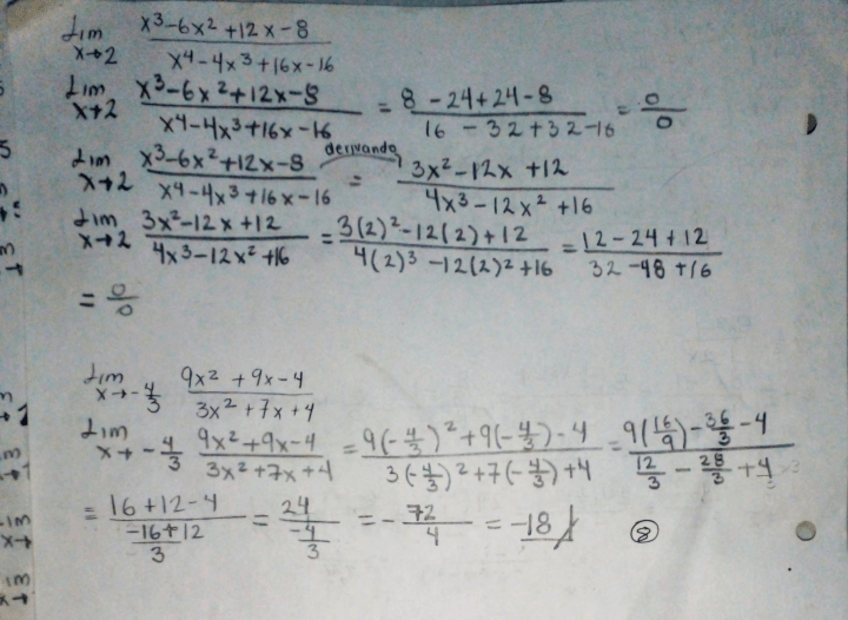 Lim x→2 (x³-6x²+12x-8)/(x⁴-4x³+16x-16)
Lim x→2 (x³-6x²+12x-8)/(x⁴-4x³+16x-16) = (8-24+24-8)/(16-32+32-16) = 0/0
Lim x→2 (x³-6x²+12x-8)/(x⁴-4x³+16x-16) derivando = (3x²-12x+12)/(4x³-12x²+16)
Lim x→2 (3x²-12x+12)/(4x³-12x²+16) = (3(2)²-12(2)+12)/(4(2)³-12(2)²+16) = (12-24+12)/(32-48+16)
= 0/0
Lim x→-4/3 (9x²+9x-4)/(3x²+7x+4)
Lim x→-4/3 (9x²+9x-4)/(3x²+7x+4) = (9(-4/3)²+9(-4/3)-4)/(3(-4/3)²+7(-4/3)+4) = (9(16/9)-36/3-4)/(12/3-28/3+4)
= (16+12-4)/((-16+12)/3) = 24/(-4/3) = -72/4 = -18
8